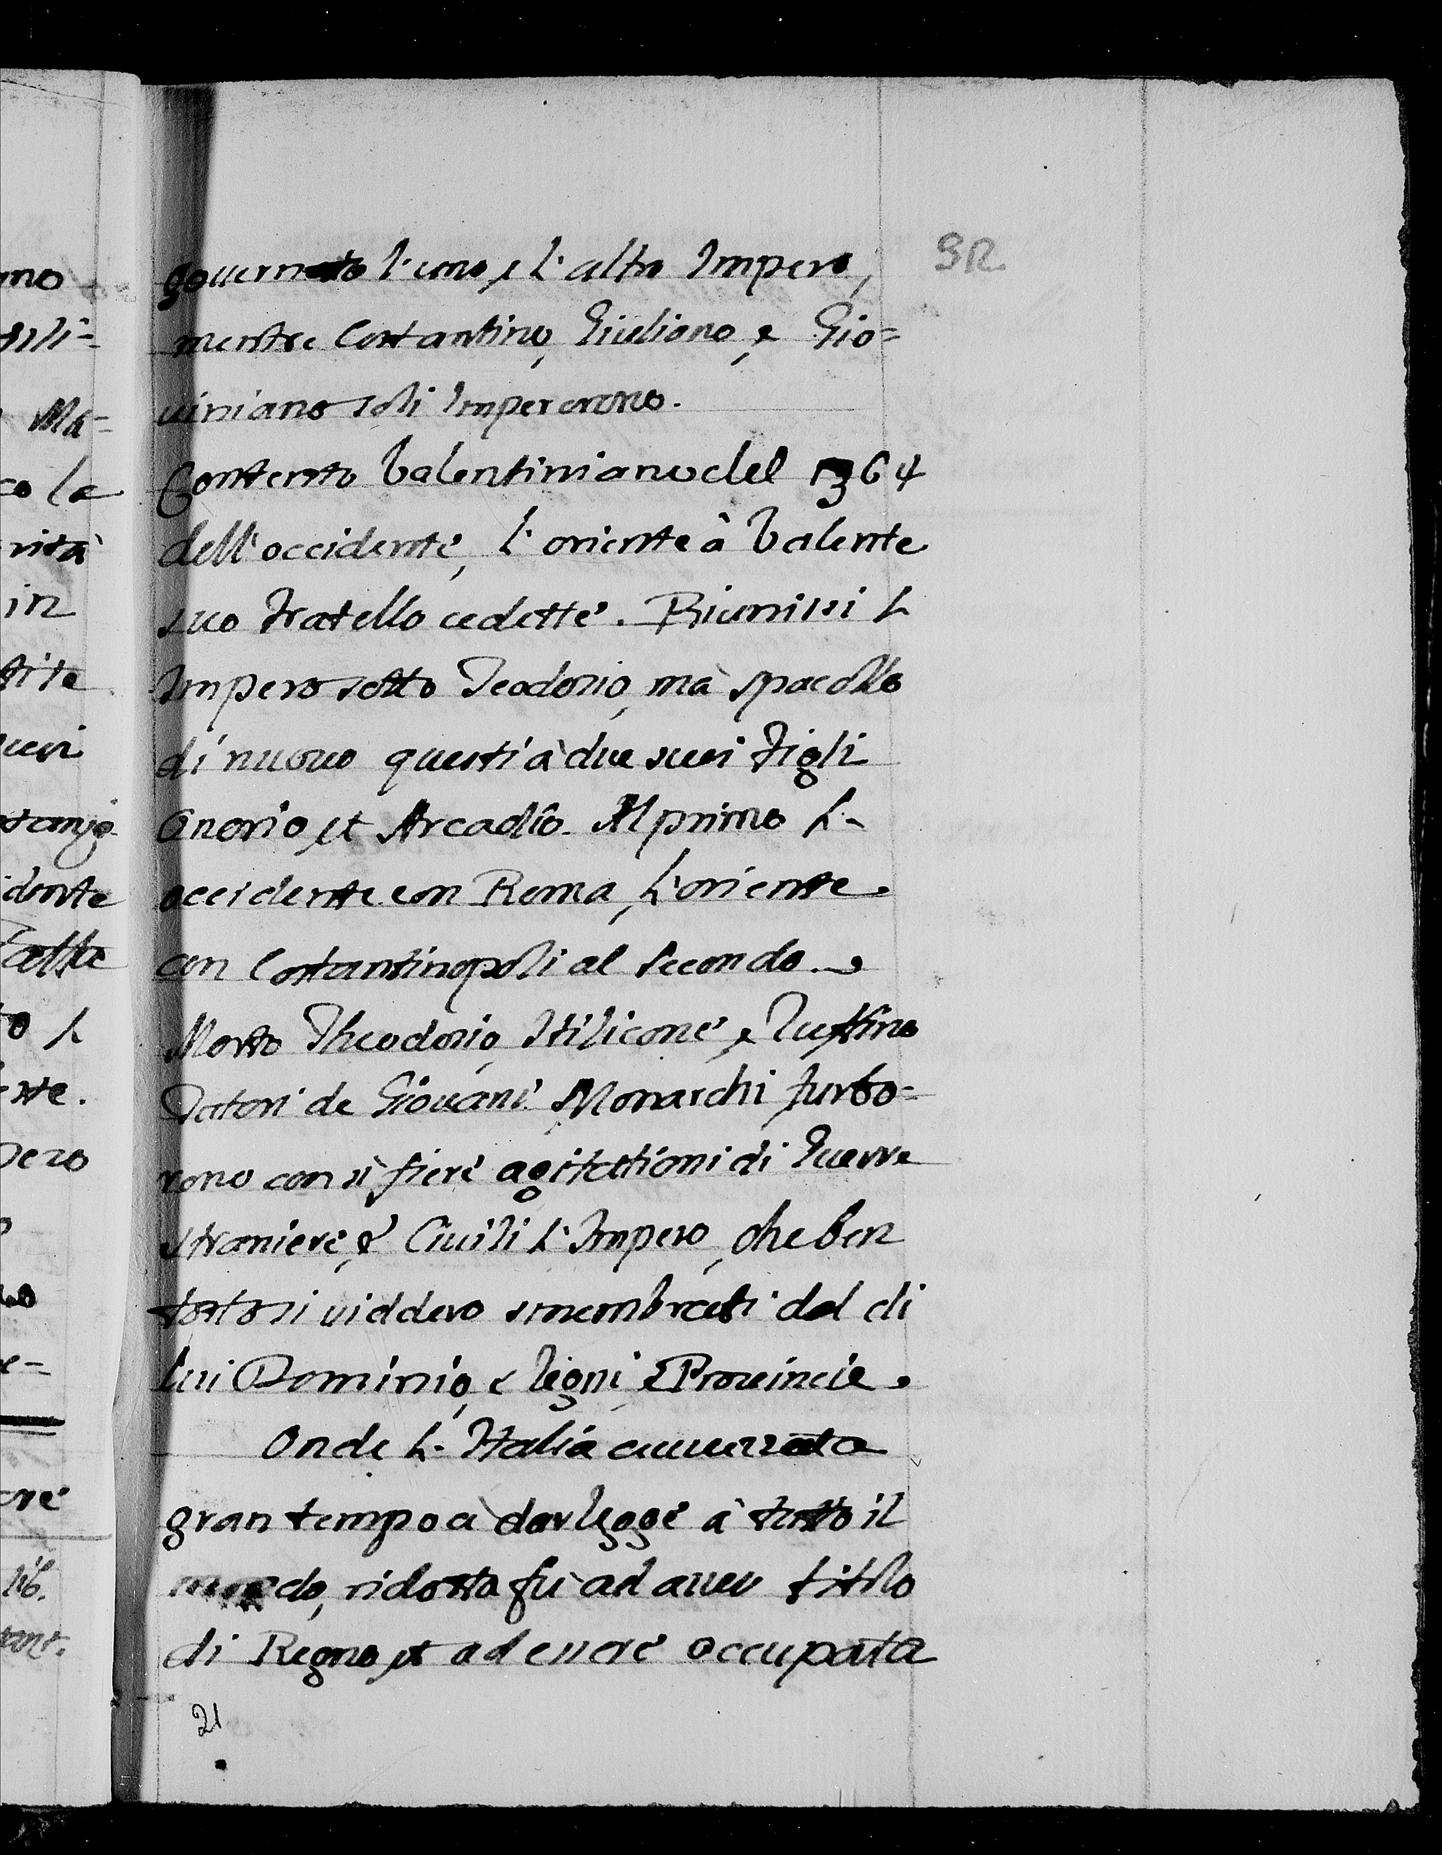 32
gouernato l'uno, e l'altro Impero,
mentre Costantino, Giuliano, e Gio=
uiniano soli Imperorono.
Contento Valentiniano del 364
dell'occidente, l'oriente à Valente
suo fratello cedette. Riunissi l
Impero sotto Teodosio, mà spacollo
di nuouo questi à due suoi figli
Onorio, et Arcadio. Al primo l'
occidente con Roma, l'oriente
con Costantinopoli al secondo.
Morto Theodosio, Stilicone, e Ruffino
Tutori de Giouani Monarchi turbo=
rono con sì fiere agitationi di Guerre
straniere, e Ciuili l'Impero, che ben
tosto si viddero smembrati dal di
lui Dominio, e Regni, e Prouincie.
Onde l'Italia auuezzata
gran tempo à dar legge à tutto il
mondo, ridotta fù ad auer titolo
di Regno, et ad essere occupata
21